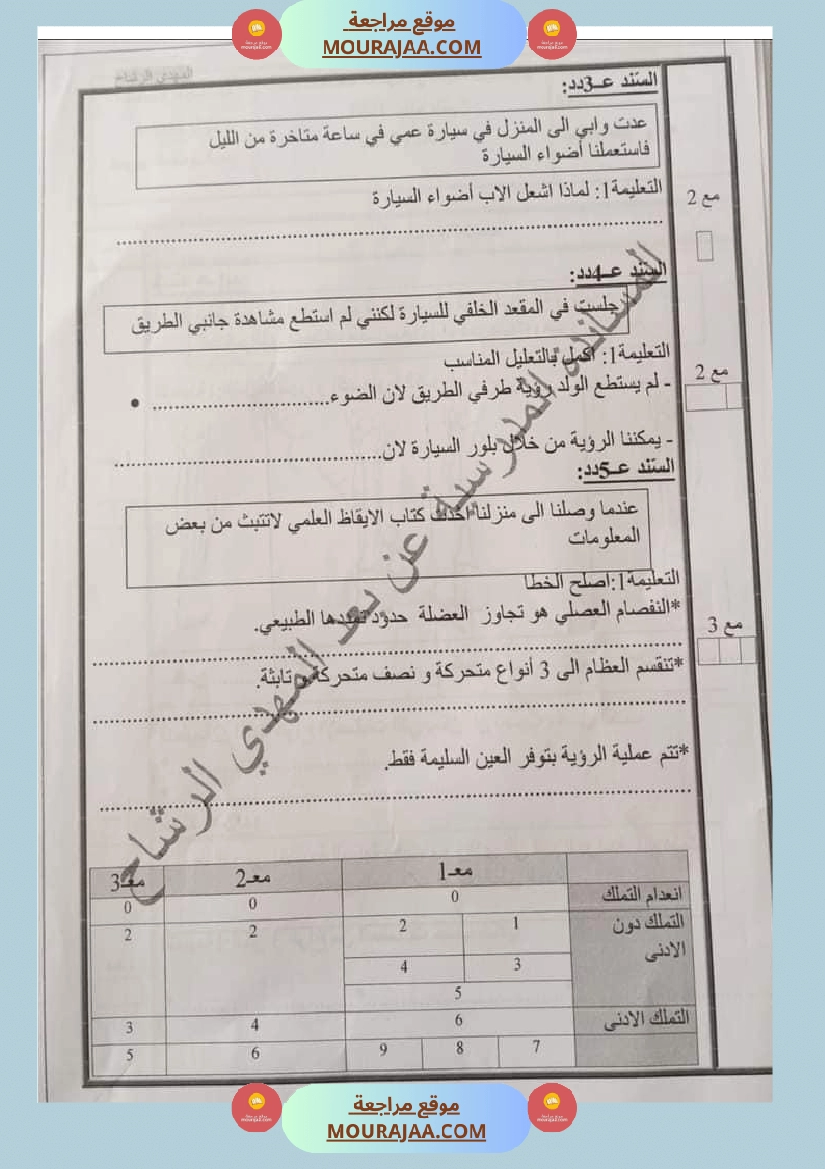 موقع مراجعة
MOURAJAA.COM
السند عـ3دد:
عدت وابي الى المنزل في سيارة عمي في ساعة متاخرة من الليل
فاستعملنا أضواء السيارة
التعليمة1: لماذا اشعل الاب أضواء السيارة
مع 2
السند عـ4دد:
جلست في المقعد الخلفي للسيارة لكنني لم استطع مشاهدة جانبي الطريق
التعليمة1: اكمل بالتعليل المناسب
مع 2
- لم يستطع الولد رؤية طرفي الطريق لان الضوء..............................
- يمكننا الرؤية من خلال بلور السيارة لان..............................
السند عـ5دد:
عندما وصلنا الى منزلنا اخذت كتاب الايقاظ العلمي لاتثبت من بعض
المعلومات
التعليمة1:اصلح الخطا
*النفصام العصلي هو تجاوز العضلة حدود تمددها الطبيعي.
مع 3
*تنقسم العظام الى 3 أنواع متحركة و نصف متحركة و ثابثة.
*تتم عملية الرؤية بتوفر العين السليمة فقط.
المساندة المدرسية عن بعد المهدي الرشاح
معـ1 معـ2 معـ3
انعدام التملك 0 0 0
التملك دون 1 2 2 2
الادنى
3 4
5
التملك الادنى 6 4 3
7 8 9 6 5
موقع مراجعة
MOURAJAA.COM